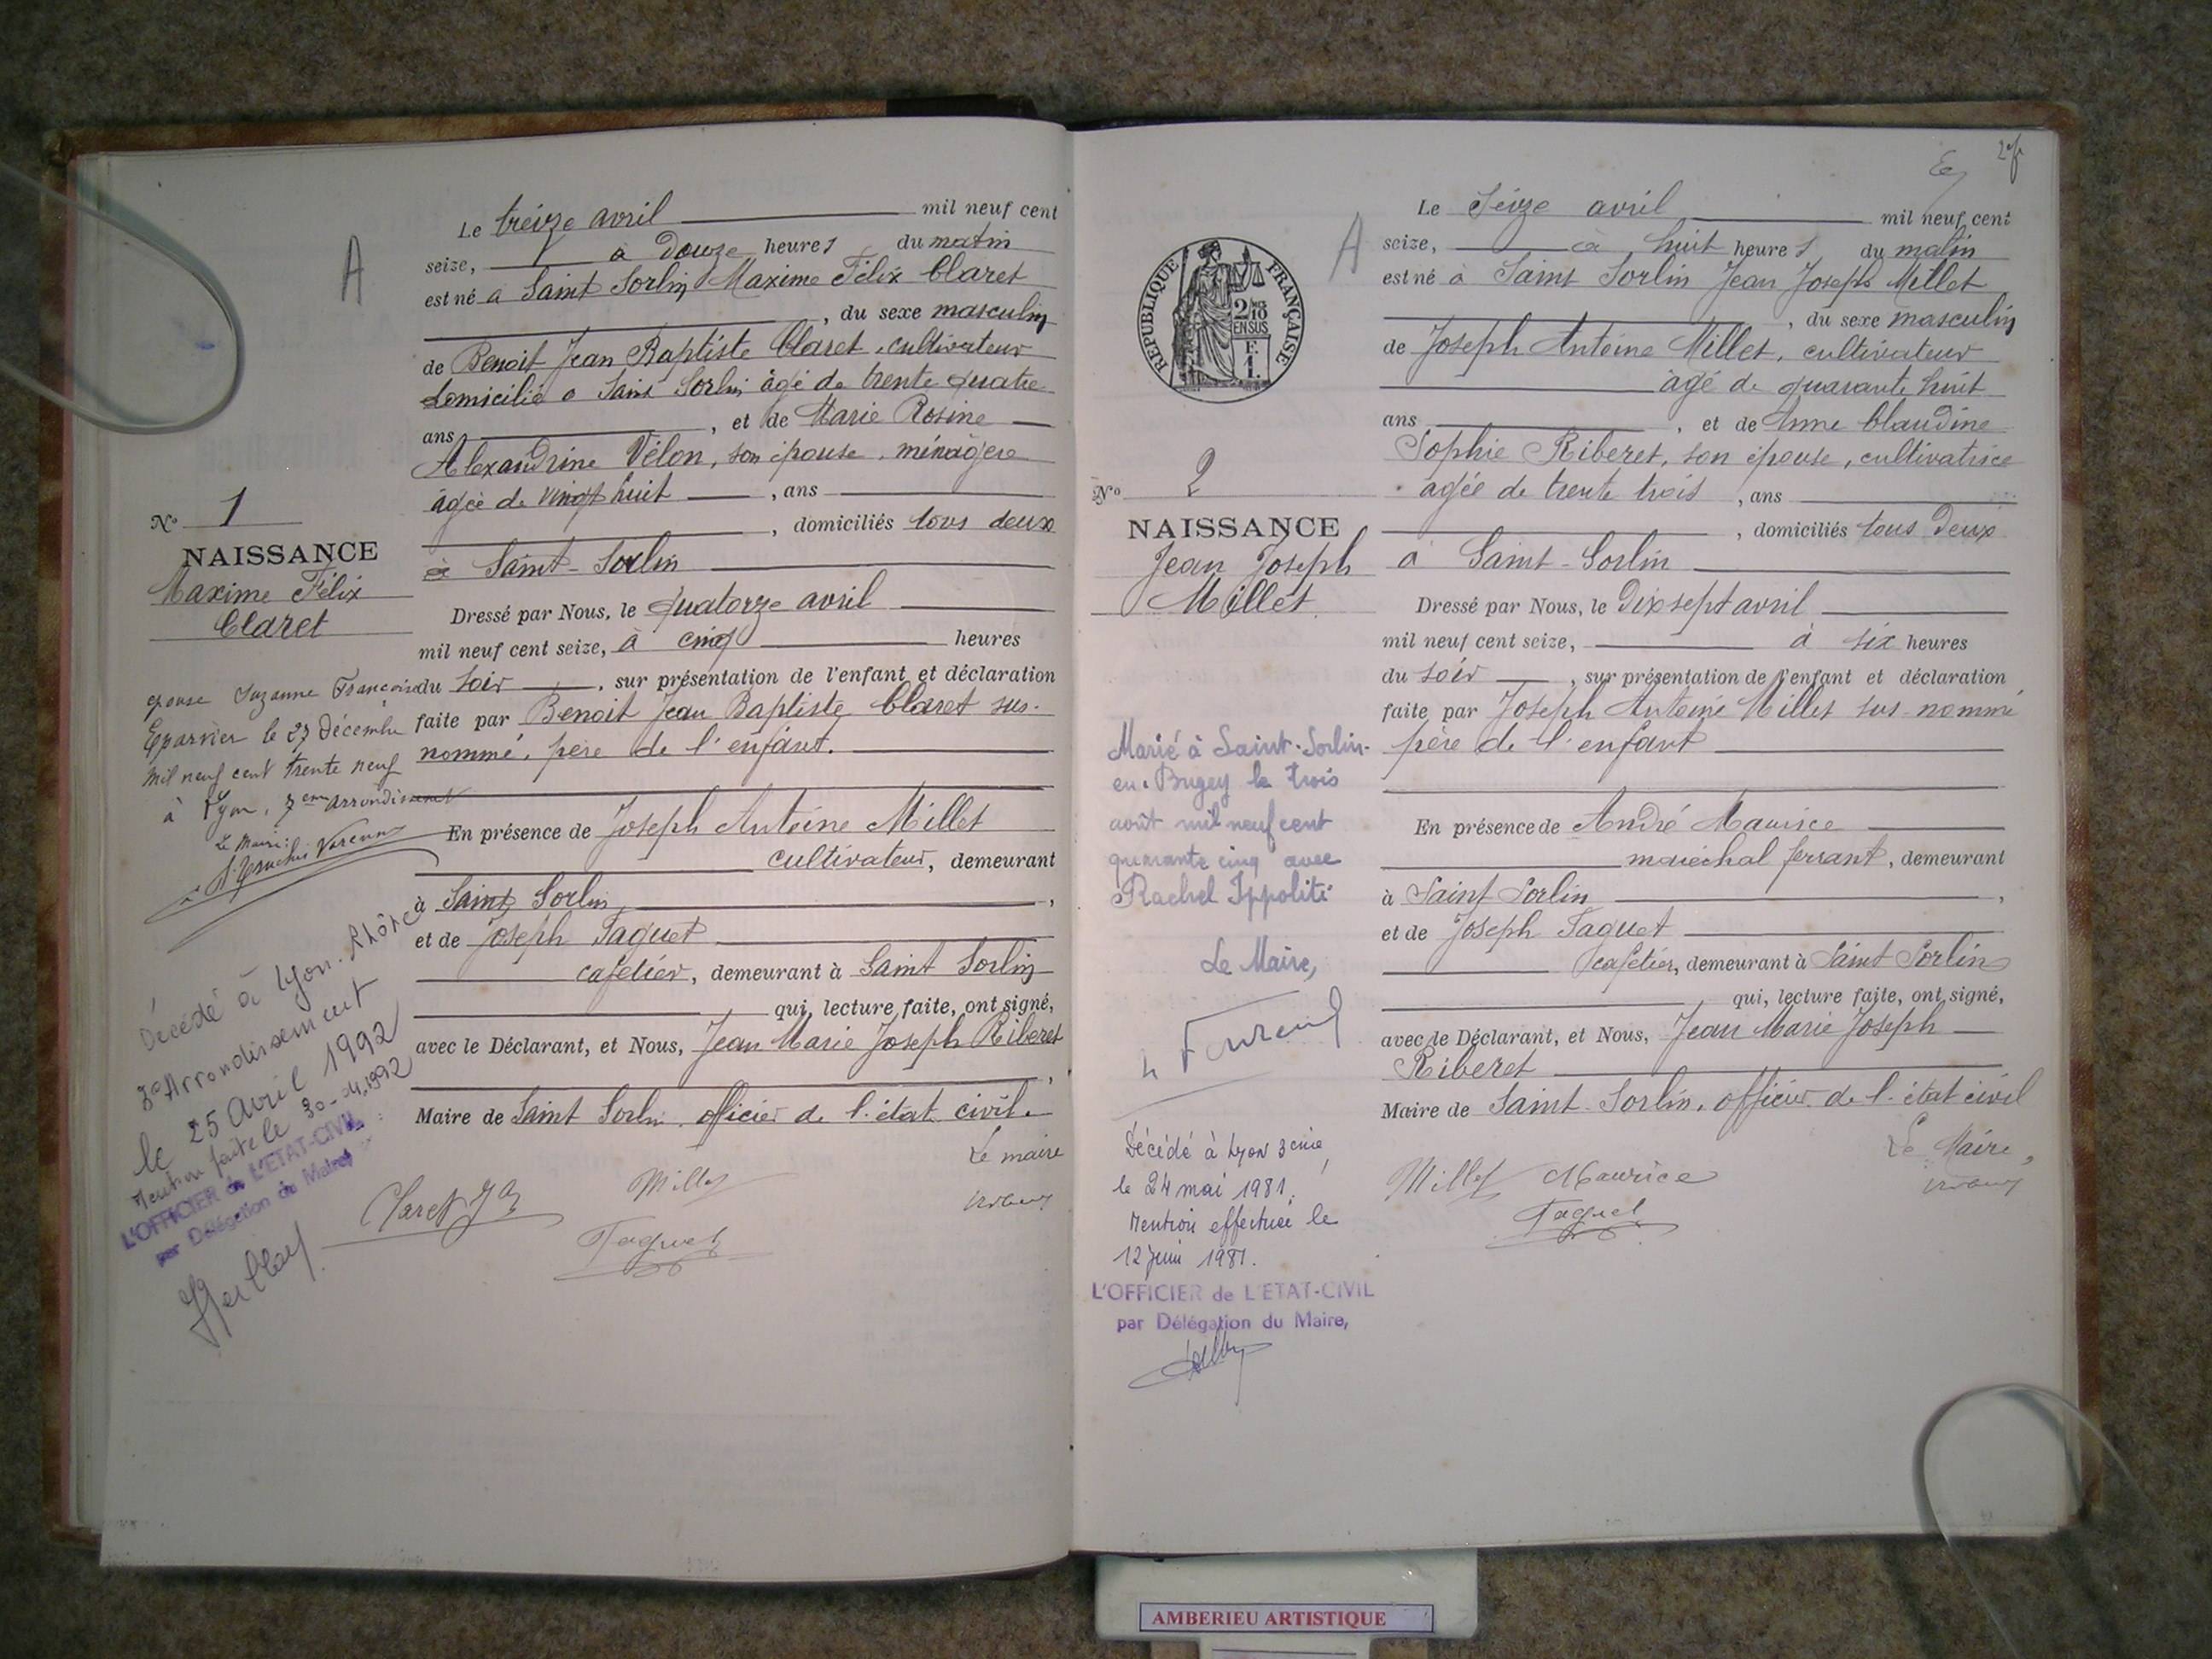 A
Le treize avril mil neuf cent
seize, à douze heures du matin
est né à Saint Sorlin Maxime Félix Claret
, du sexe masculin
de Benoit Jean Baptiste Claret, cultivateur
domicilié à Saint Sorlin âgé de trente quatre
ans, et de Marie Rosine
Alexandrine Vélon, son épouse, ménagère
âgée de vingt huit, ans
, domiciliés tous deux
à Saint-Sorlin
Dressé par Nous, le quatorze avril
mil neuf cent seize, à cinq heures
du soir, sur présentation de l'enfant et déclaration
faite par Benoit Jean Baptiste Claret sus-
nommé, père de l'enfant.
En présence de Joseph Antoine Millet
cultivateur, demeurant
à Saint Sorlin,
et de Joseph Taguet
cafetier, demeurant à Saint Sorlin
qui, lecture faite, ont signé,
avec le Déclarant, et Nous, Jean Marie Joseph Riberet
,
Maire de Saint Sorlin, officier de l'état civil.
Le maire
Claret J B
Millet
Taguet
No 1
NAISSANCE
Maxime Félix
Claret
epouse Suzanne Françoise
Eparvier le 27 Décembre
mil neuf cent trente neuf
à Lyon, 7eme arrondissement
Le Maire:
Décédé à Lyon. Rhône
3e Arrondissement
le 25 Avril 1992
Mention faite le 30-04-1992
L'OFFICIER de L'ETAT-CIVIL
par Délégation du Maire,
2e f
A
REPUBLIQUE FRANÇAISE
2/10
EN SUS
F.
1.
Le Seize avril mil neuf cent
seize, à huit heures du matin
est né à Saint Sorlin Jean Joseph Millet
, du sexe masculin
de Joseph Antoine Millet, cultivateur
âgé de quarante huit
ans, et de Anne Claudine
Sophie Riberet, son épouse, cultivatrice
âgée de trente trois, ans
, domiciliés tous deux
à Saint-Sorlin
Dressé par Nous, le Dix sept avril
mil neuf cent seize, à six heures
du soir, sur présentation de l'enfant et déclaration
faite par Joseph Antoine Millet sus-nommé
père de l'enfant
En présence de André Maurice
maréchal ferrant, demeurant
à Saint Sorlin,
et de Joseph Taguet
cafetier, demeurant à Saint Sorlin
qui, lecture faite, ont signé,
avec le Déclarant, et Nous, Jean Marie Joseph
Riberet
Maire de Saint-Sorlin, officier de l'état civil
Le Maire,
Millet Maurice
Taguet
No 2
NAISSANCE
Jean Joseph
Millet
Marié à Saint-Sorlin-
en-Bugey le trois
août mil neuf cent
quarante cinq avec
Rachel Ippoliti
Le Maire,
Décédé à Lyon 3eme,
le 24 mai 1981.
Mention effectuée le
12 juin 1981.
L'OFFICIER de L'ETAT-CIVIL
par Délégation du Maire,
AMBERIEU ARTISTIQUE